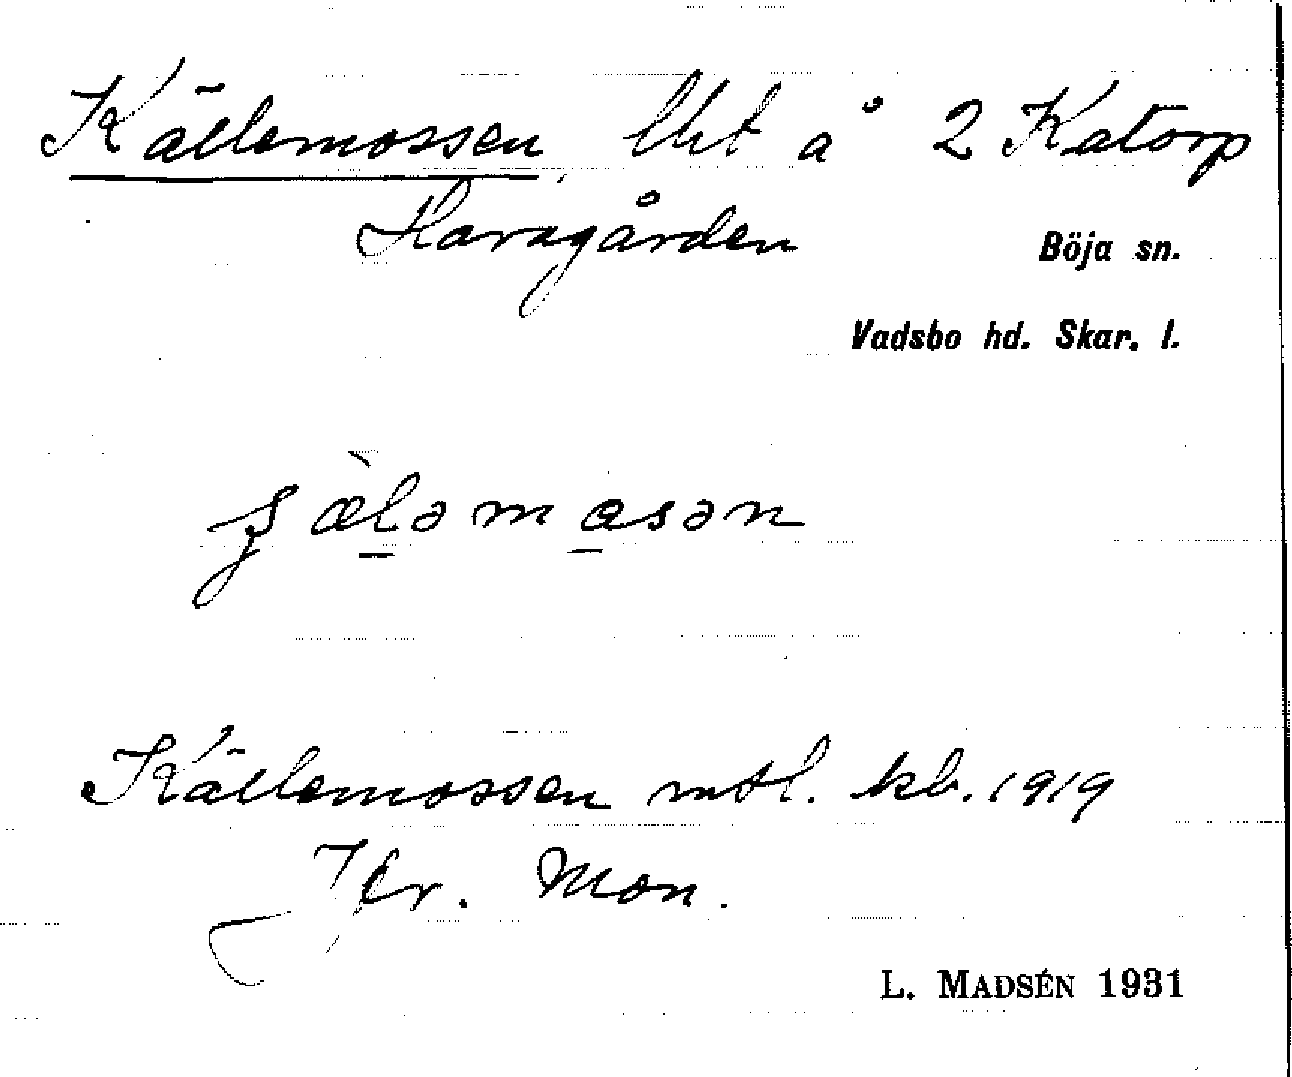 Källemossen, lht å 2 Katorp
Haragården
Böja sn.
Vadsbo hd. Skar. l.
Källemossen mtl. kb. 1919
Jfr. Mon.
L. MADSÉN 1931